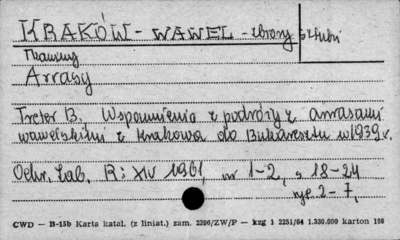 KRAKÓW - WAWEL - zbiory sztuki
Tkaniny
Arrasy
Treter B. Wspomnienia z podróży z arrasami
wawelskimi z Krakowa do Bukaresztu w 1939 r.
Ochr. Zab. R: XIV 1961, nr 1-2, s 18-24
ryc. 2-7,
CWD — B-15b Karta katal. (z liniat.) zam. 2396/ZW/P — kzg 1 2251/64 1.330.000 karton 180